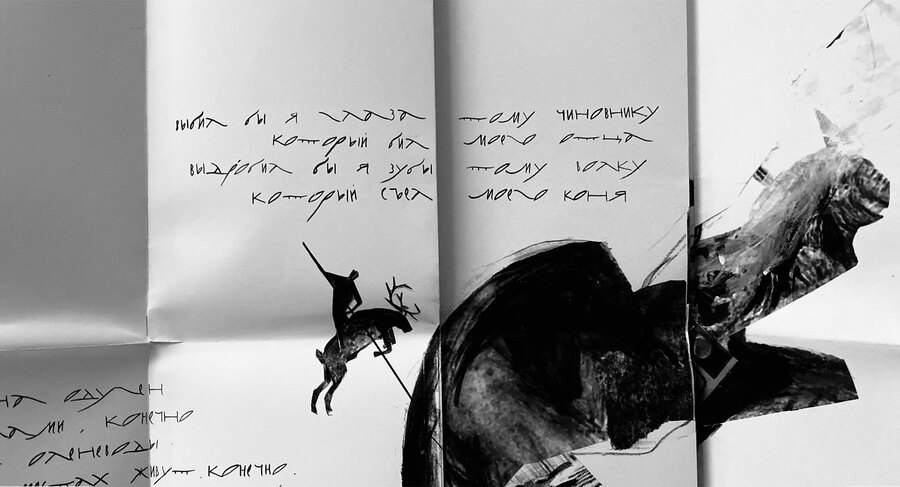 выбил бы я глаза тому чиновнику
который бил моего отца
выдробил бы я зубы тому волку
который съел моего коня
на едулен
ами. конечно
оленеводы.
живут. конечно.